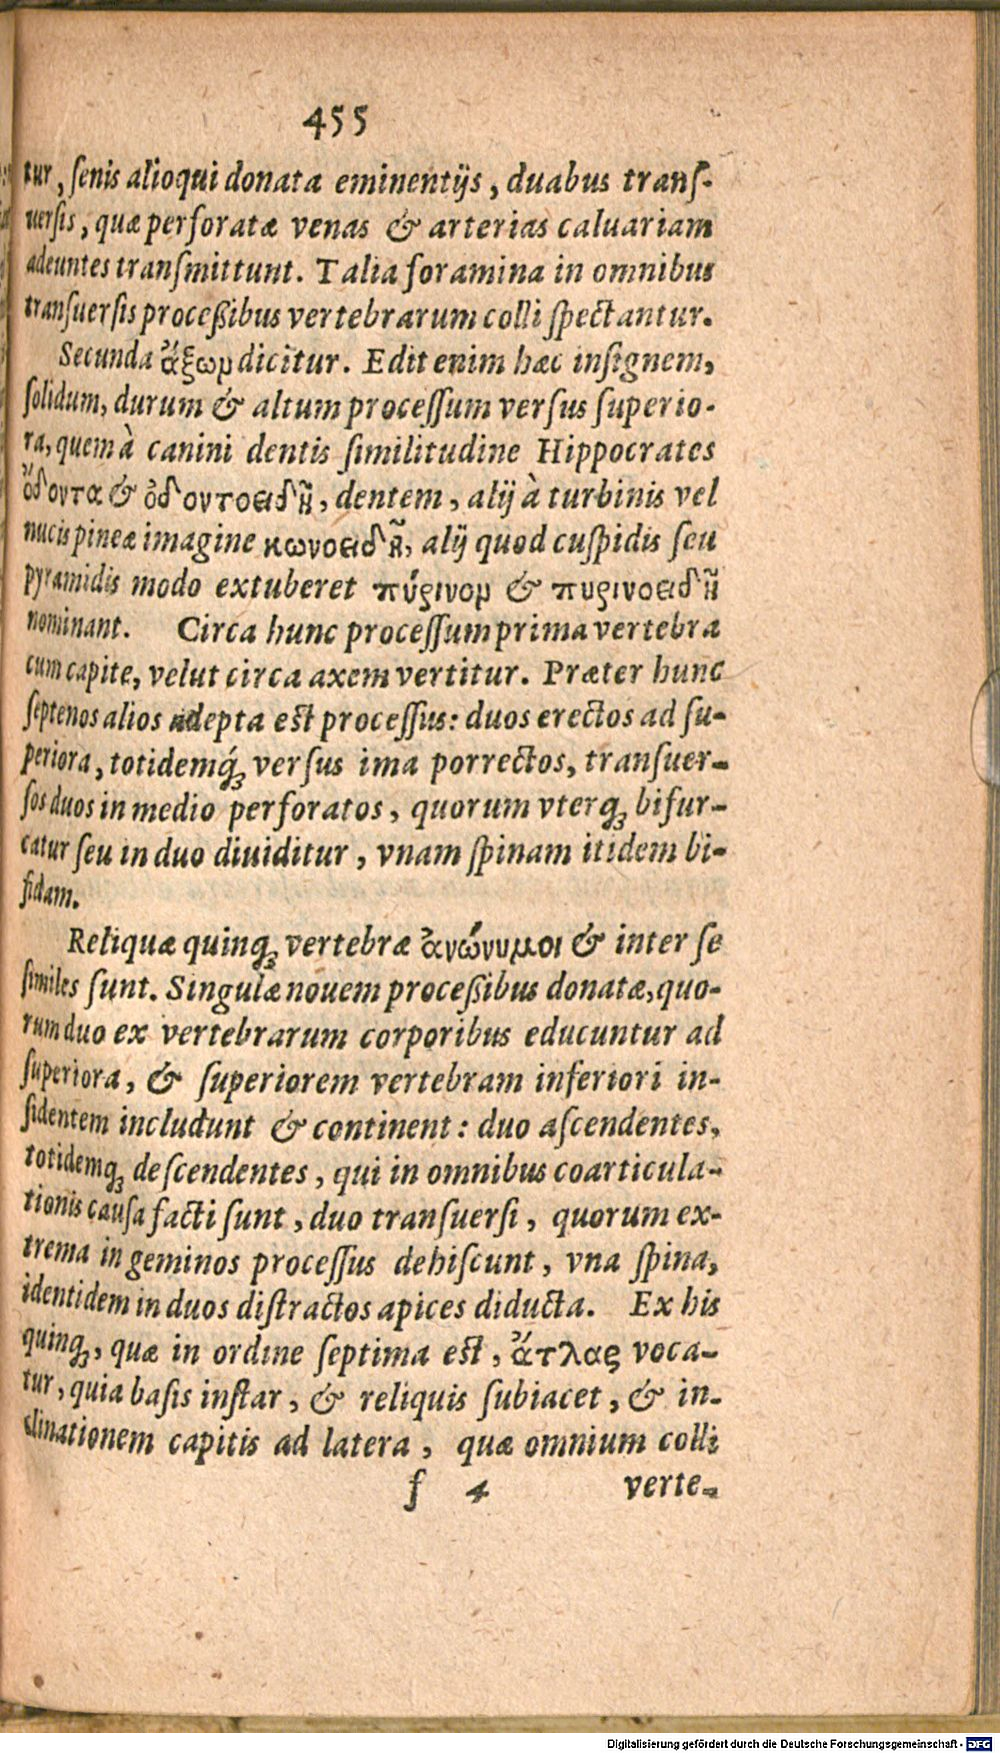 455
tur, ſenis alioqui donata eminentijs, duabus tranſ-
uerſis, quæ perforatæ venas & arterias caluariam
adeuntes tranſmittunt. Talia foramina in omnibus
tranſuerſis proceßibus vertebrarum colli ſpectantur.
Secunda ἄξωμ dicitur. Edit enim hæc inſignem,
ſolidum, durum & altum proceſſum verſus ſuperio-
ra, quem à canini dentis ſimilitudine Hippocrates
ὄδοντα & ὀδοντοειδῆ, dentem, alij à turbinis vel
nucis pineæ imagine κωνοειδῆ, alij quod cuſpidis ſeu
pyramidis modo extuberet πύρινομ & πυρινοειδῆ
nominant. Circa hunc proceſſum prima vertebra
cum capite, velut circa axem vertitur. Præter hunc
ſeptenos alios adepta eſt proceſſus: duos erectos ad ſu-
periora, totidemq́ꝫ verſus ima porrectos, tranſuer-
ſos duos in medio perforatos, quorum vterqꝫ bifur-
catur ſeu in duo diuiditur, vnam ſpinam itidem bi-
fidam.
Reliquæ quinqꝫ vertebræ ἀνώνυμοι & inter ſe
ſimiles ſunt. Singulæ nouem proceßibus donatæ, quo-
rum duo ex vertebrarum corporibus educuntur ad
ſuperiora, & ſuperiorem vertebram inferiori in-
ſidentem includunt & continent: duo aſcendentes,
totidemqꝫ deſcendentes, qui in omnibus coarticula-
tionis cauſa facti ſunt, duo tranſuerſi, quorum ex-
trema in geminos proceſſus dehiſcunt, vna ſpina,
identidem in duos diſtractos apices diducta. Ex his
quinqꝫ, quæ in ordine ſeptima eſt, ἄτλας voca-
tur, quia baſis inſtar, & reliquis ſubiacet, & in-
clinationem capitis ad latera, quæ omnium colli
f 4 verte-
Digitalisierung gefördert durch die Deutsche Forschungsgemeinschaft - DFG